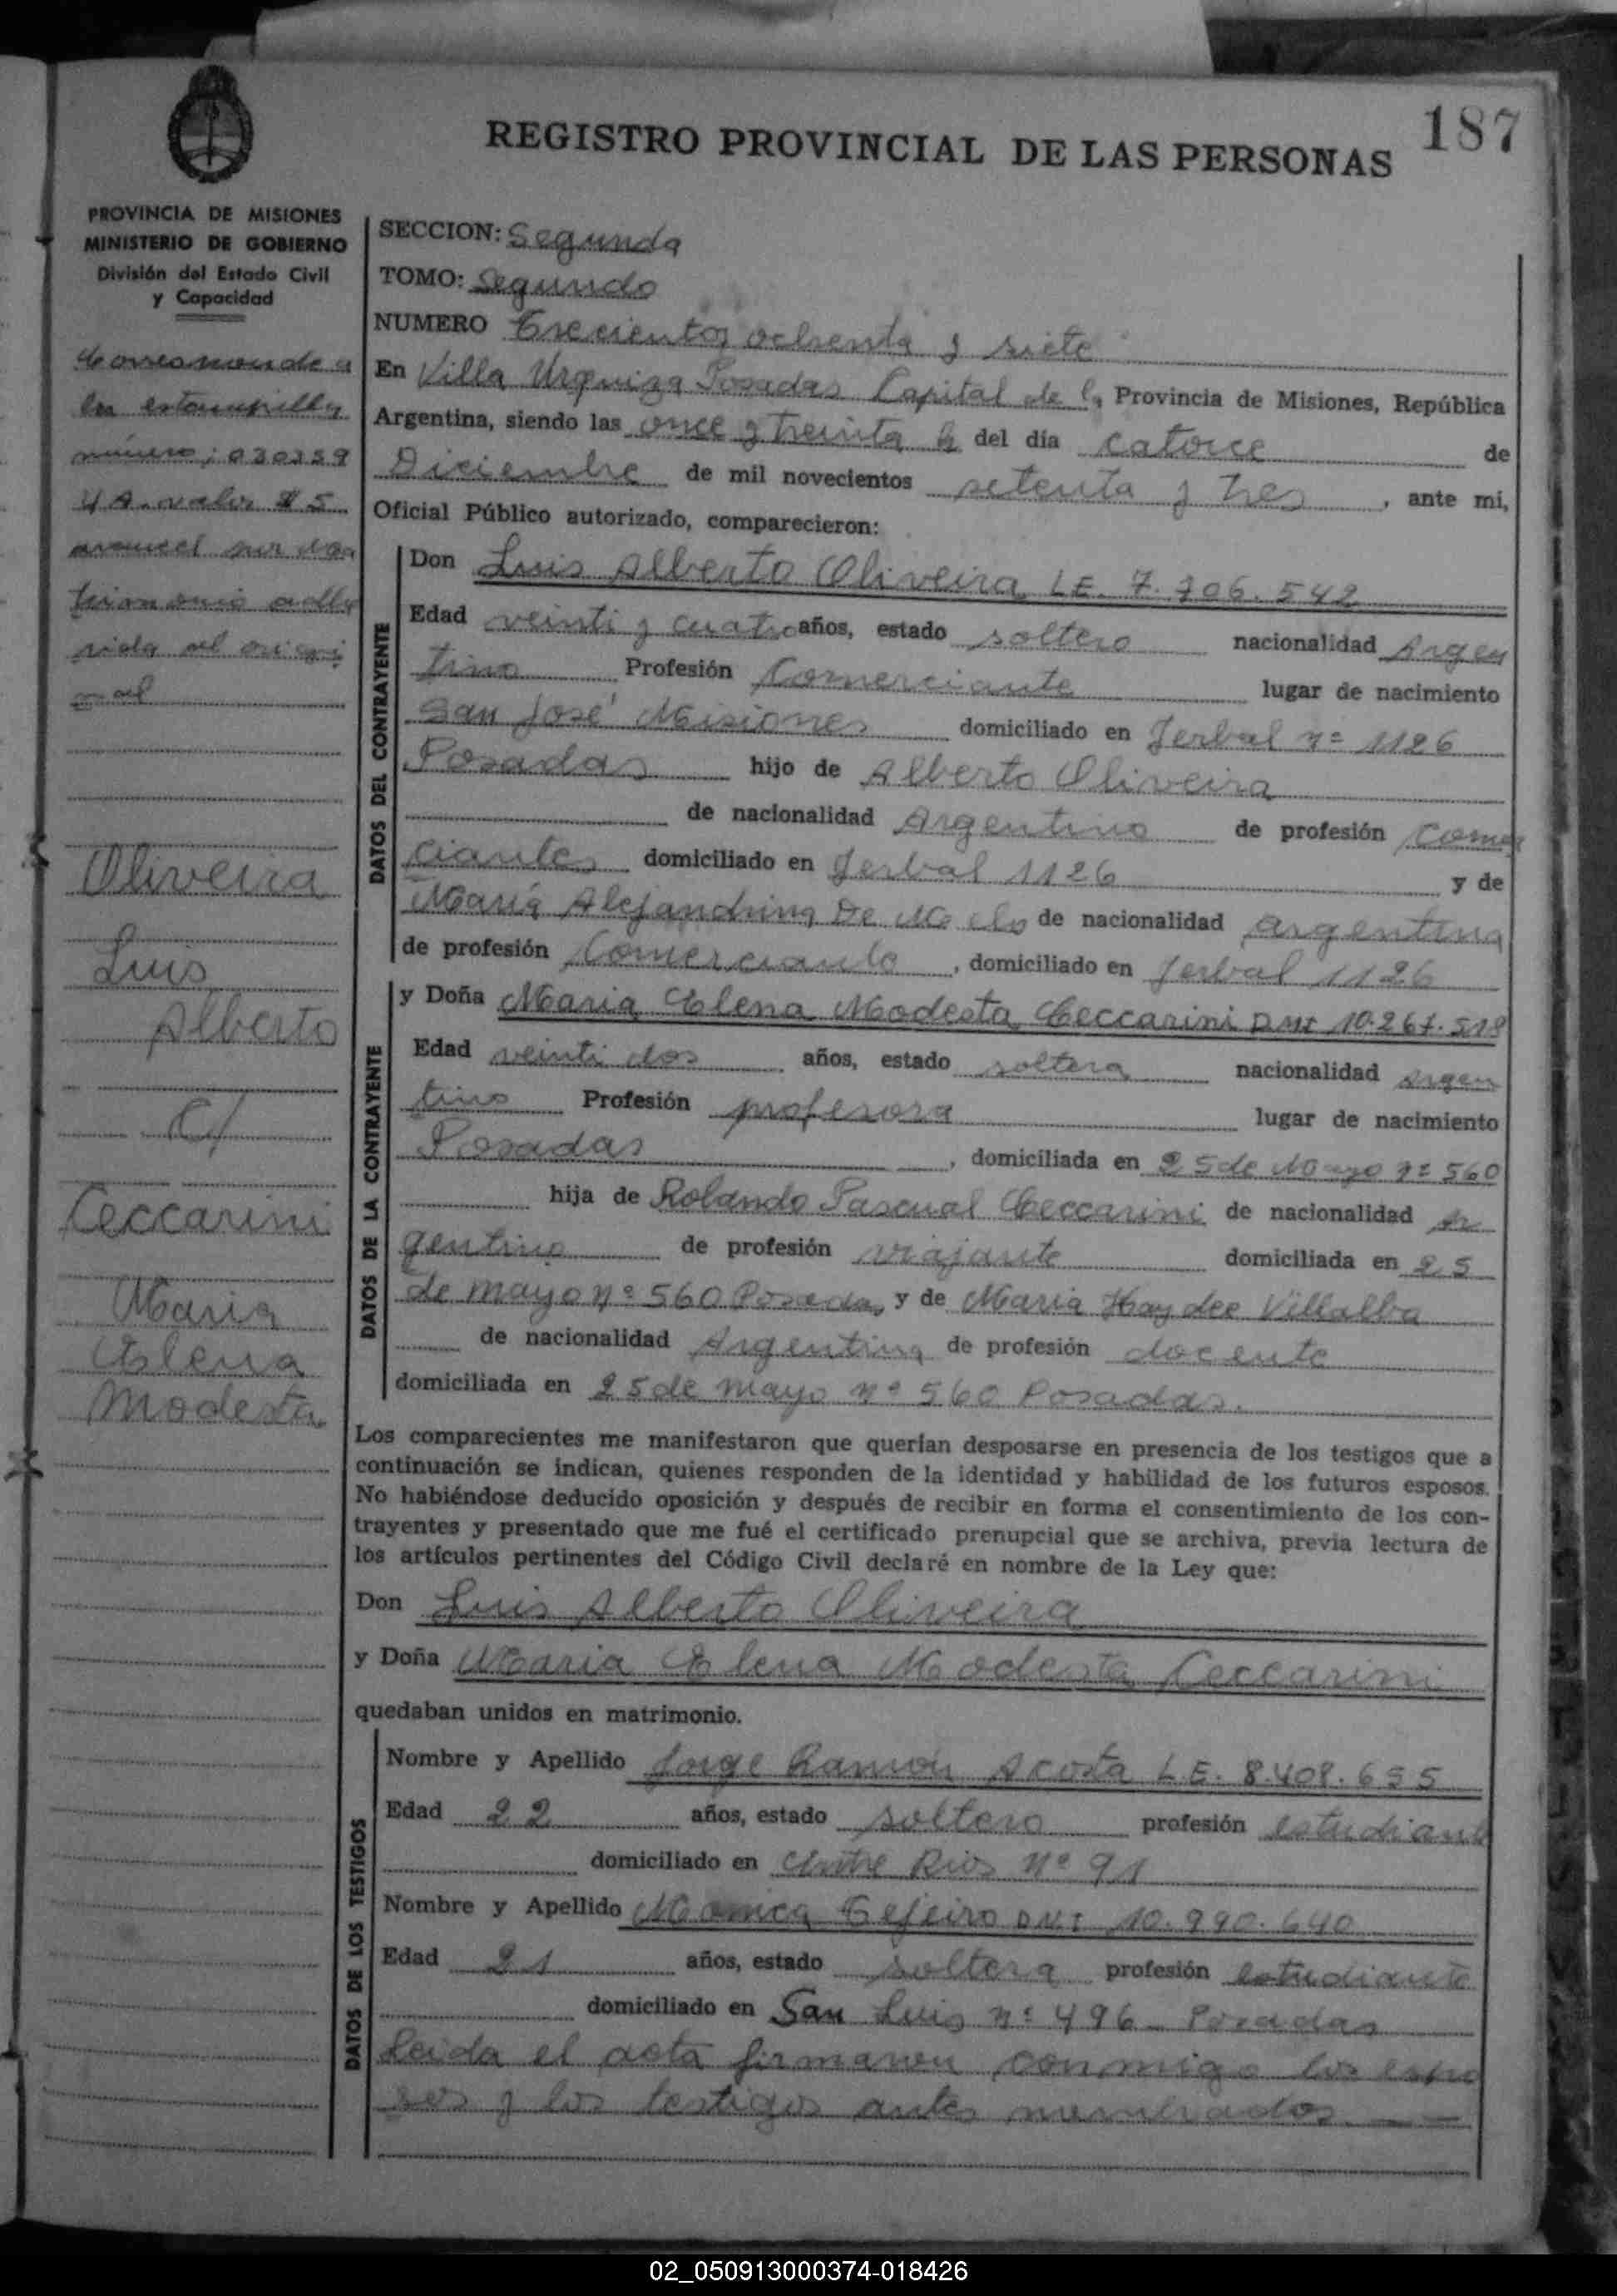 187
REGISTRO PROVINCIAL DE LAS PERSONAS
PROVINCIA DE MISIONES
MINISTERIO DE GOBIERNO
División del Estado Civil
y Capacidad
Corresponde a
la estampilla
número; 030359
4 A. valor $ 5
arancel por ma
trimonio adhe
rida al origi
nal
Oliveira
Luis
Alberto
c/
Ceccarini
Maria
Elena
Modesta.
SECCION: Segunda
TOMO: Segundo
NUMERO Trecientos ochenta y siete
En Villa Urquiza Posadas Capital de la Provincia de Misiones, República
Argentina, siendo las once y treinta h del día catorce de
Diciembre de mil novecientos setenta y tres, ante mi,
Oficial Público autorizado, comparecieron:
DATOS DEL CONTRAYENTE
Don Luis Alberto Oliveira L.E. 7.706.542
Edad veinti y cuatro años, estado soltero nacionalidad Argen
tino Profesión Comerciante lugar de nacimiento
San José Misiones domiciliado en Jerbal nº 1126
Posadas hijo de Alberto Oliveira
de nacionalidad Argentino de profesión Comer
ciantes domiciliado en Jerbal 1126 y de
María Alejandrina De Melo de nacionalidad argentina
de profesión Comerciante, domiciliado en Jerbal 1126
DATOS DE LA CONTRAYENTE
y Doña Maria Elena Modesta Ceccarini DNI 10.267.518
Edad veinti dos años, estado soltera nacionalidad Argen
tino Profesión profesora lugar de nacimiento
Posadas, domiciliada en 25 de Mayo nº 560
hija de Rolando Pascual Ceccarini de nacionalidad Ar
gentino de profesión viajante domiciliada en 25
de mayo nº 560 Posadas y de Maria Haydee Villalba
de nacionalidad Argentina de profesión docente
domiciliada en 25 de mayo nº 560 Posadas.
Los comparecientes me manifestaron que querían desposarse en presencia de los testigos que a
continuación se indican, quienes responden de la identidad y habilidad de los futuros esposos.
No habiéndose deducido oposición y después de recibir en forma el consentimiento de los con-
trayentes y presentado que me fué el certificado prenupcial que se archiva, previa lectura de
los artículos pertinentes del Código Civil declaré en nombre de la Ley que:
Don Luis Alberto Oliveira
y Doña Maria Elena Modesta Ceccarini
quedaban unidos en matrimonio.
DATOS DE LOS TESTIGOS
Nombre y Apellido Jorge Ramón Acosta L.E. 8.408.655
Edad 22 años, estado soltero profesión estudiante
domiciliado en Entre Rios nº 91
Nombre y Apellido Monica Tejeiro DNI 10.990.640
Edad 21 años, estado soltera profesión estudiante
domiciliado en San Luis nº 496 - Posadas
Leida el acta firmaron conmigo los espo
sos y los testigos antes nombrados.
02_050913000374-018426